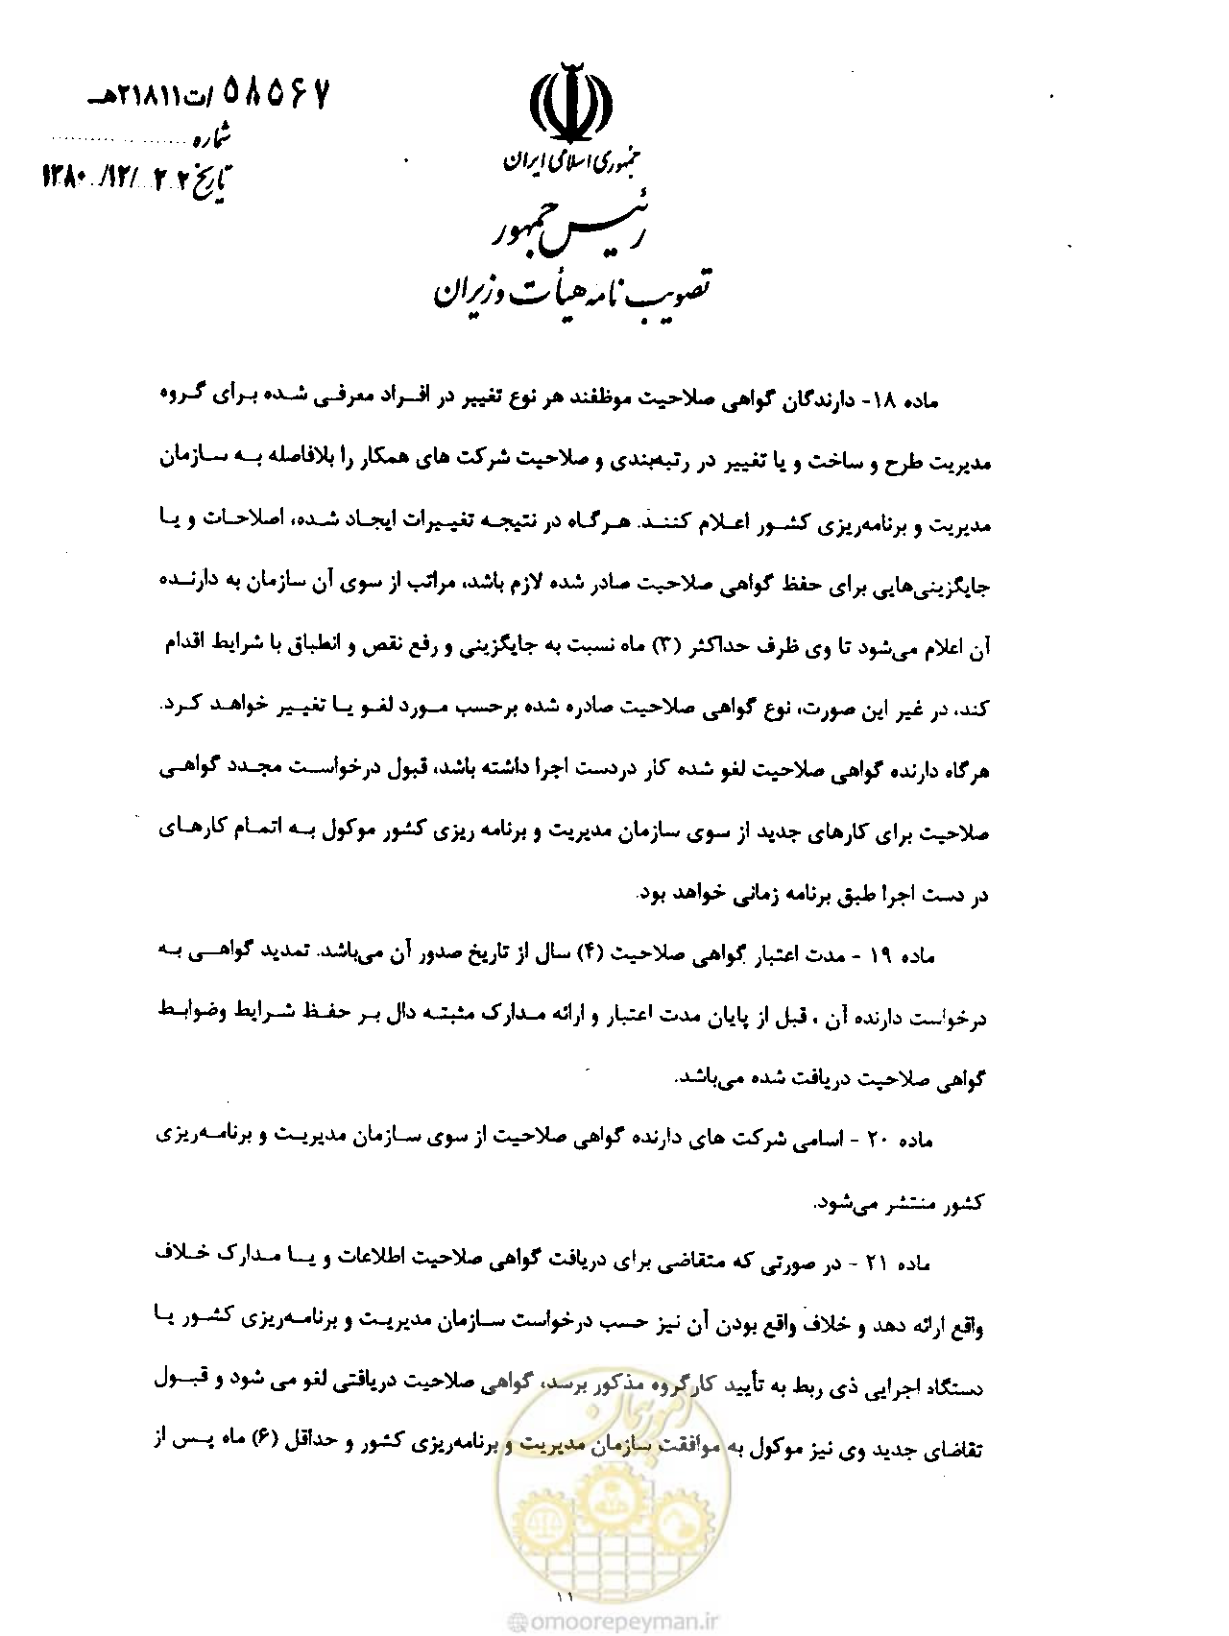 ۵۸۵۶۷/ت۲۱۸۱۱هـ
شماره
تاریخ ۱۳۸۰/۱۲/۲۲
جمهوری اسلامی ایران
رئیس جمهور
تصویب نامه هیأت وزیران
ماده ۱۸- دارندگان گواهی صلاحیت موظفند هر نوع تغییر در افراد معرفی شده برای گروه
مدیریت طرح و ساخت و یا تغییر در رتبه‌بندی و صلاحیت شرکت های همکار را بلافاصله به سازمان
مدیریت و برنامه‌ریزی کشور اعلام کنند. هرگاه در نتیجه تغییرات ایجاد شده، اصلاحات و یا
جایگزینی‌هایی برای حفظ گواهی صلاحیت صادر شده لازم باشد، مراتب از سوی آن سازمان به دارنده
آن اعلام می‌شود تا وی ظرف حداکثر (۳) ماه نسبت به جایگزینی و رفع نقص و انطباق با شرایط اقدام
کند، در غیر این صورت، نوع گواهی صلاحیت صادره شده برحسب مورد لغو یا تغییر خواهد کرد.
هرگاه دارنده گواهی صلاحیت لغو شده کار دردست اجرا داشته باشد، قبول درخواست مجدد گواهی
صلاحیت برای کارهای جدید از سوی سازمان مدیریت و برنامه ریزی کشور موکول به اتمام کارهای
در دست اجرا طبق برنامه زمانی خواهد بود.
ماده ۱۹ - مدت اعتبار گواهی صلاحیت (۴) سال از تاریخ صدور آن می‌باشد. تمدید گواهی به
درخواست دارنده آن ، قبل از پایان مدت اعتبار و ارائه مدارک مثبته دال بر حفظ شرایط وضوابط
گواهی صلاحیت دریافت شده می‌باشد.
ماده ۲۰ - اسامی شرکت های دارنده گواهی صلاحیت از سوی سازمان مدیریت و برنامه‌ریزی
کشور منتشر می‌شود.
ماده ۲۱ - در صورتی که متقاضی برای دریافت گواهی صلاحیت اطلاعات و یا مدارک خلاف
واقع ارائه دهد و خلاف واقع بودن آن نیز حسب درخواست سازمان مدیریت و برنامه‌ریزی کشور یا
دستگاه اجرایی ذی ربط به تأیید کارگروه مذکور برسد، گواهی صلاحیت دریافتی لغو می شود و قبول
تقاضای جدید وی نیز موکول به موافقت سازمان مدیریت و برنامه‌ریزی کشور و حداقل (۶) ماه پس از
امور پیمان
۱۱
@omoorepeyman.ir